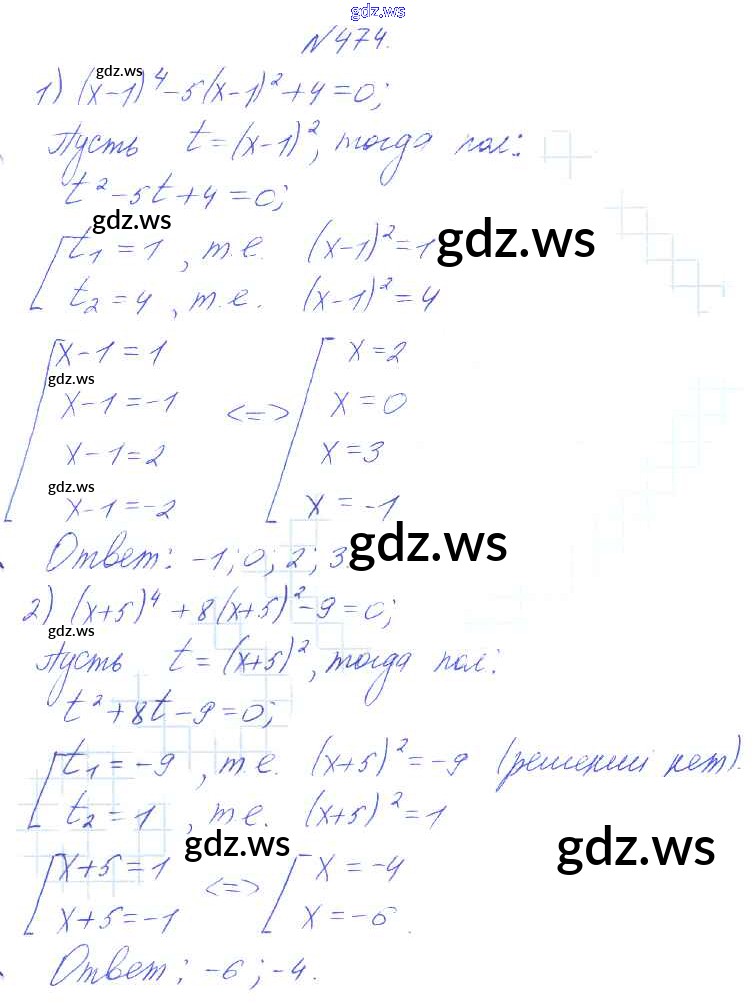 gdz.ws
№474.
gdz.ws
1) (x-1)⁴-5(x-1)²+4=0;
Пусть t=(x-1)², тогда пол:
t²-5t+4=0;
gdz.ws
t₁=1, т.е. (x-1)²=1 gdz.ws
t₂=4, т.е. (x-1)²=4
x-1=1 x=2
gdz.ws
x-1=-1 <=> x=0
x-1=2 x=3
gdz.ws
x-1=-2 x=-1
Ответ: -1; 0; 2; 3 gdz.ws
2) (x+5)⁴+8(x+5)²-9=0;
gdz.ws
Пусть t=(x+5)², тогда пол:
t²+8t-9=0;
t₁=-9, т.е. (x+5)²=-9 (решений нет).
t₂=1, т.е. (x+5)²=1
gdz.ws gdz.ws
x+5=1 <=> x=-4
x+5=-1 x=-6.
Ответ: -6; -4.